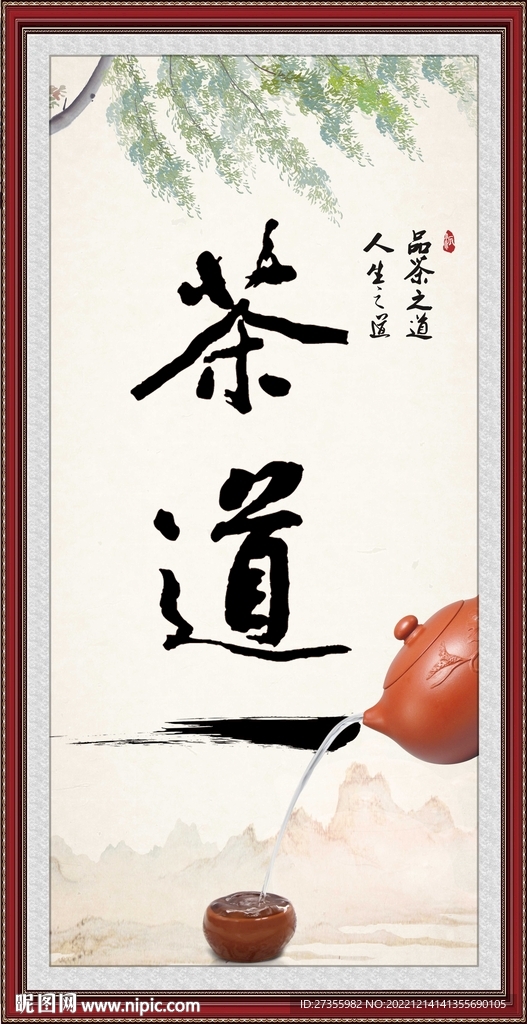 茶道
品茶之道
人生之道
昵图网 www.nipic.com
ID:27355982 NO:20221214141355690105